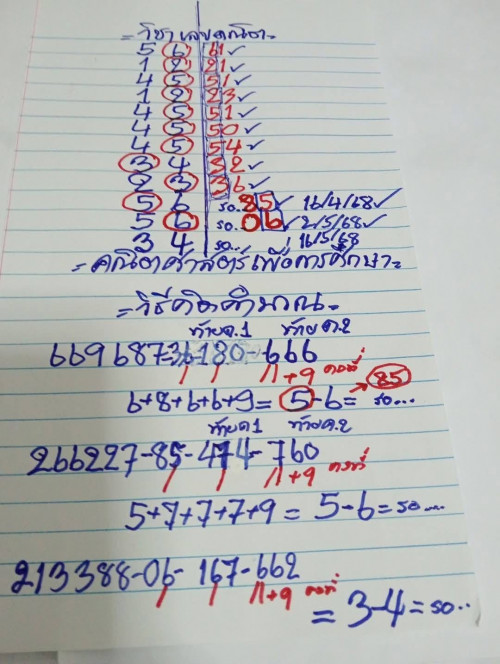 =วิชาเลขคณิต=
5 6 61✓
1 2 21✓
4 5 51✓
1 2 23✓
4 5 51✓
4 5 50✓
4 5 54✓
3 4 32✓
2 3 36✓
5 6 รอ.85✓ 16/4/68✓
5 6 รอ.06✓ 2/5/68✓
3 4 รอ.. 16/5/68
=คณิตศาสตร์เพื่อการศึกษา=
=วิธีคิดคำนวณ=
ท้ายต.1 ท้ายต.2
669687-36-180-666
//+9 คงที่
6+8+6+6+9= 5-6= รอ... → 85
ท้ายต.1 ท้ายต.2
266227-85-474-760
//+9 คงที่
5+7+7+7+9 = 5-6=รอ....
213388-06-167-662
//+9 คงที่
= 3-4=รอ..